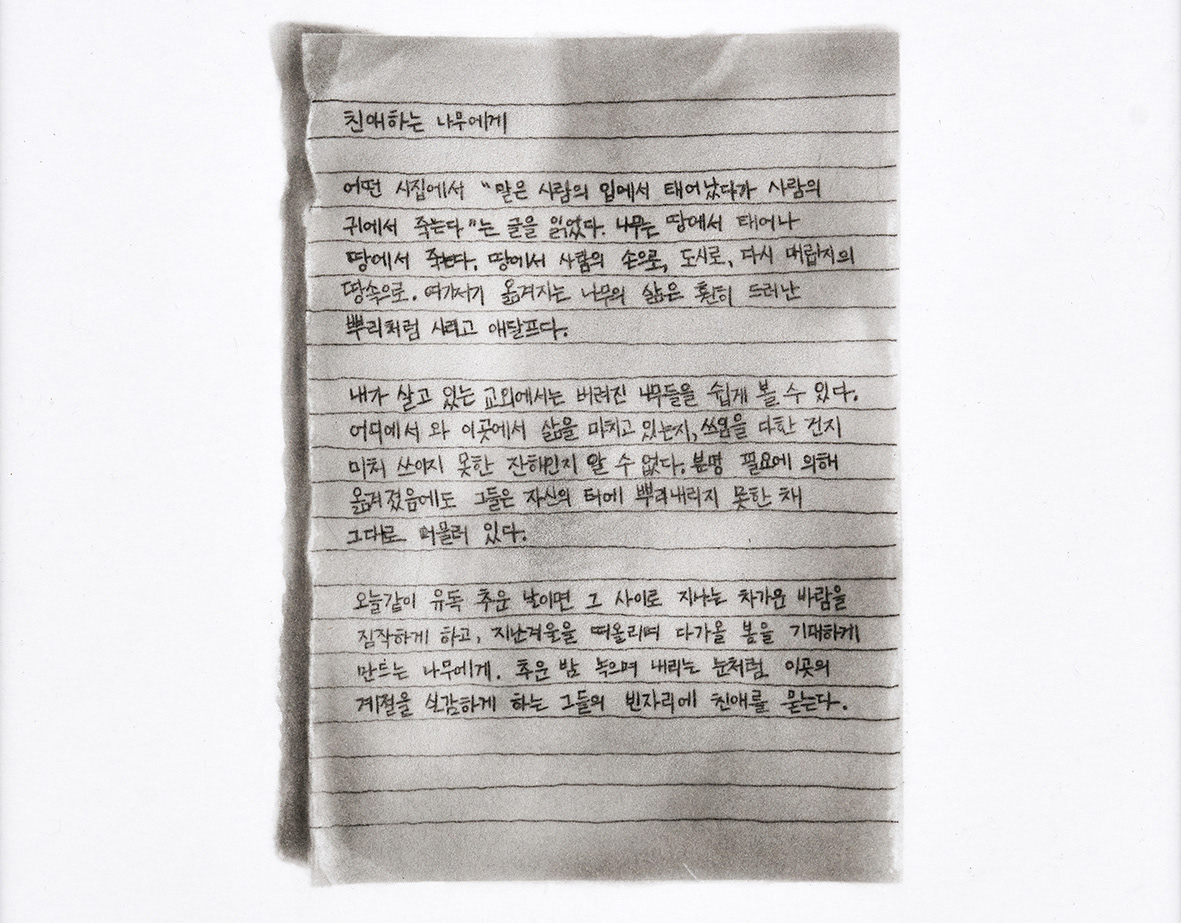 친애하는 나무에게
어떤 시집에서 "말은 사람의 입에서 태어났다가 사람의
귀에서 죽는다"는 글을 읽었다. 나무는 땅에서 태어나
땅에서 죽는다. 땅에서 사람의 손으로, 도시로, 다시 머립지의
땅속으로. 여기저기 옮겨지는 나무의 삶은 훤히 드러난
뿌리처럼 시리고 애달프다.
내가 살고 있는 교외에서는 버려진 나무들을 쉽게 볼 수 있다.
어디에서 와 이곳에서 삶을 마치고 있는지, 쓰임을 다한 건지
미처 쓰이지 못한 잔해인지 알 수 없다. 분명 필요에 의해
옮겨졌음에도 그들은 자신의 터에 뿌리내리지 못한 채
그대로 머물러 있다.
오늘같이 유독 추운 날이면 그 사이로 지나는 차가운 바람을
짐작하게 하고, 지난겨울을 떠올리며 다가올 봄을 기대하게
만드는 나무에게. 추운 밤 녹으며 내리는 눈처럼 이곳의
계절을 실감하게 하는 그들의 빈자리에 친애를 묻는다.